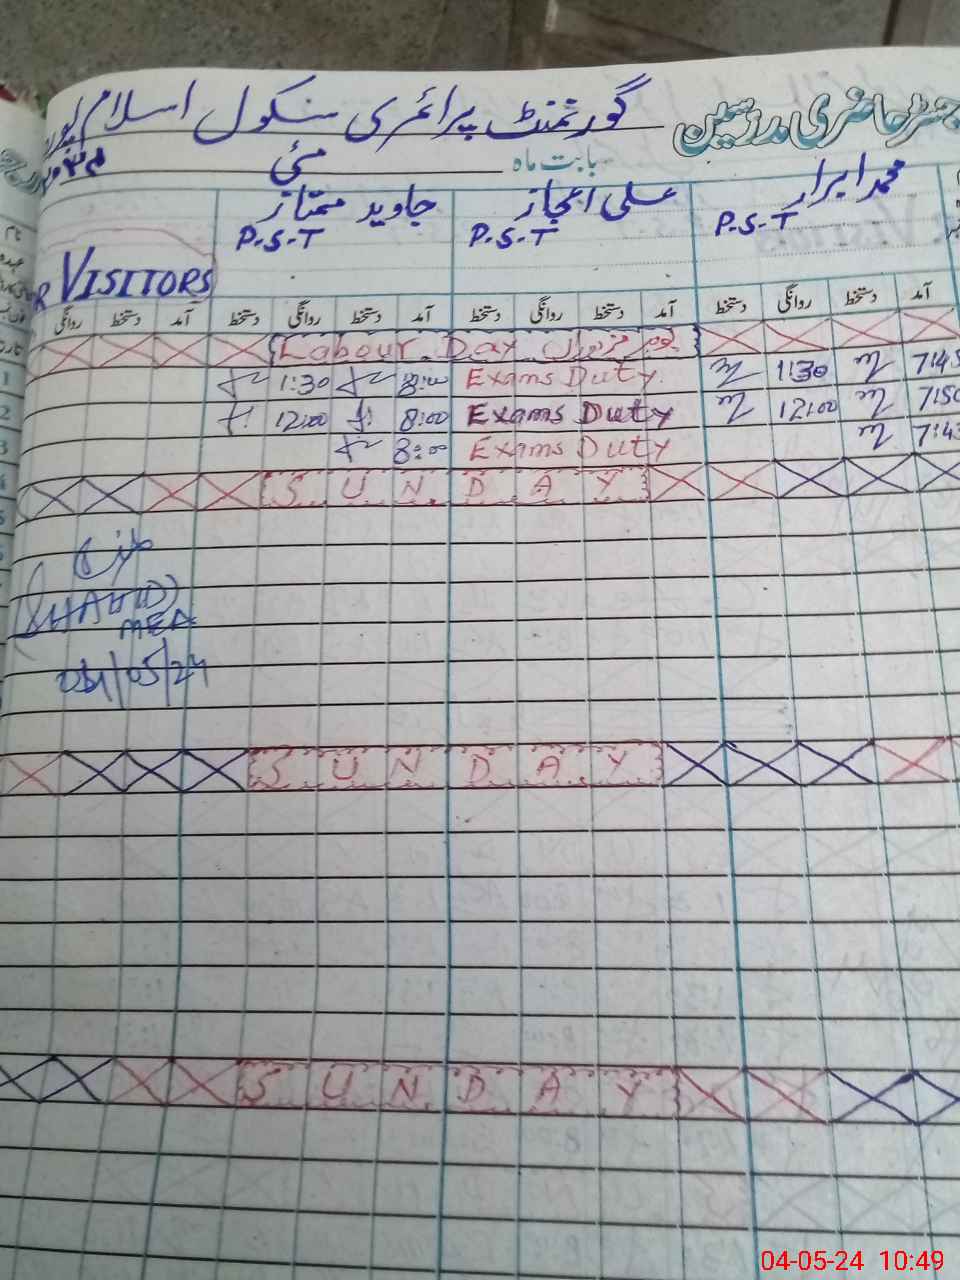 رجسٹر حاضری مدرسین گورنمنٹ پرائمری سکول اسلام پورہ
بابت ماہ مئی
محمد ابرار علی اعجاز جاوید ممتاز
P.S.T P.S.T P.S.T
VISITORS
آمد دستخط روانگی دستخط آمد دستخط روانگی دستخط آمد دستخط روانگی دستخط آمد دستخط روانگی
Labour Day یوم مزدوراں
1:30 8:00 Exams Duty 1:30 7:45
12:00 8:00 Exams Duty 12:00 7:50
8:00 Exams Duty 7:43
SUNDAY
(SHAHID)
MEA
04/05/24
SUNDAY
SUNDAY
04-05-24 10:49